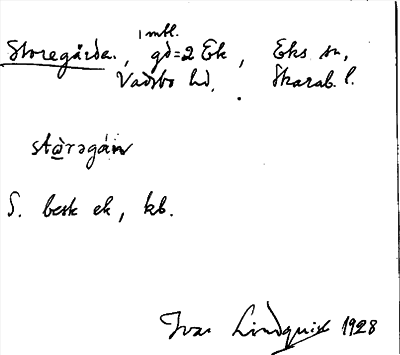 1 mtl.
Storegården, gd=2 Ek, Eks sn,
Vadsbo hd. Skarab. l.
stårəgán
S. besk ek, kb.
Ivar Lindquist 1928